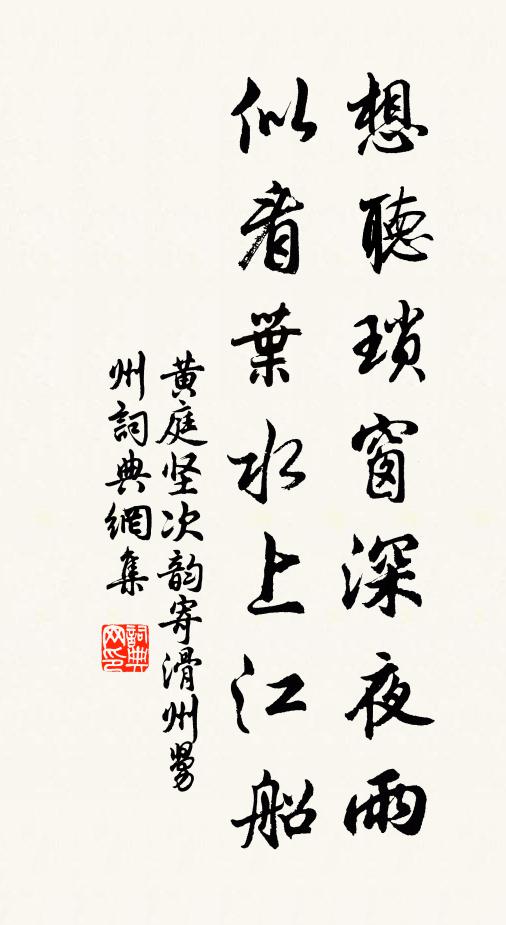 想聽瑣窗深夜雨
似看葉水上江船
黄庭坚次韵寄滑州舅
州詞典網集
詞典网印